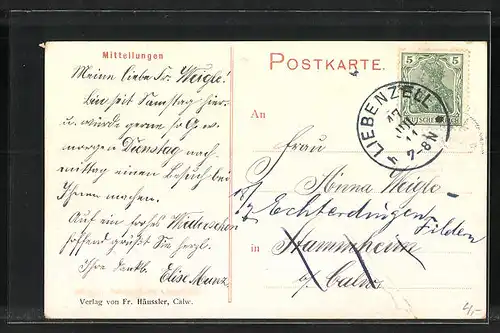 Mitteilungen
Meine liebe Fr. Weigle!
bin seit Samstag hier
u. würde gerne so G. w.
morgen Dienstag nach-
mittag einen Besuch bei
Ihnen machen.
Auf ein frohes Wiedersehen
hoffend grüßt Sie herzl.
Ihre dankb.
Elise Munz
Verlag von Fr. Häussler, Calw.
POSTKARTE.
5 5
DEUTSCHES
LIEBENZELL
17
JUL
11
7-8N
An
Frau
Anna Weigle
Echterdingen
Fildern
in Stammheim
Calw
4,-